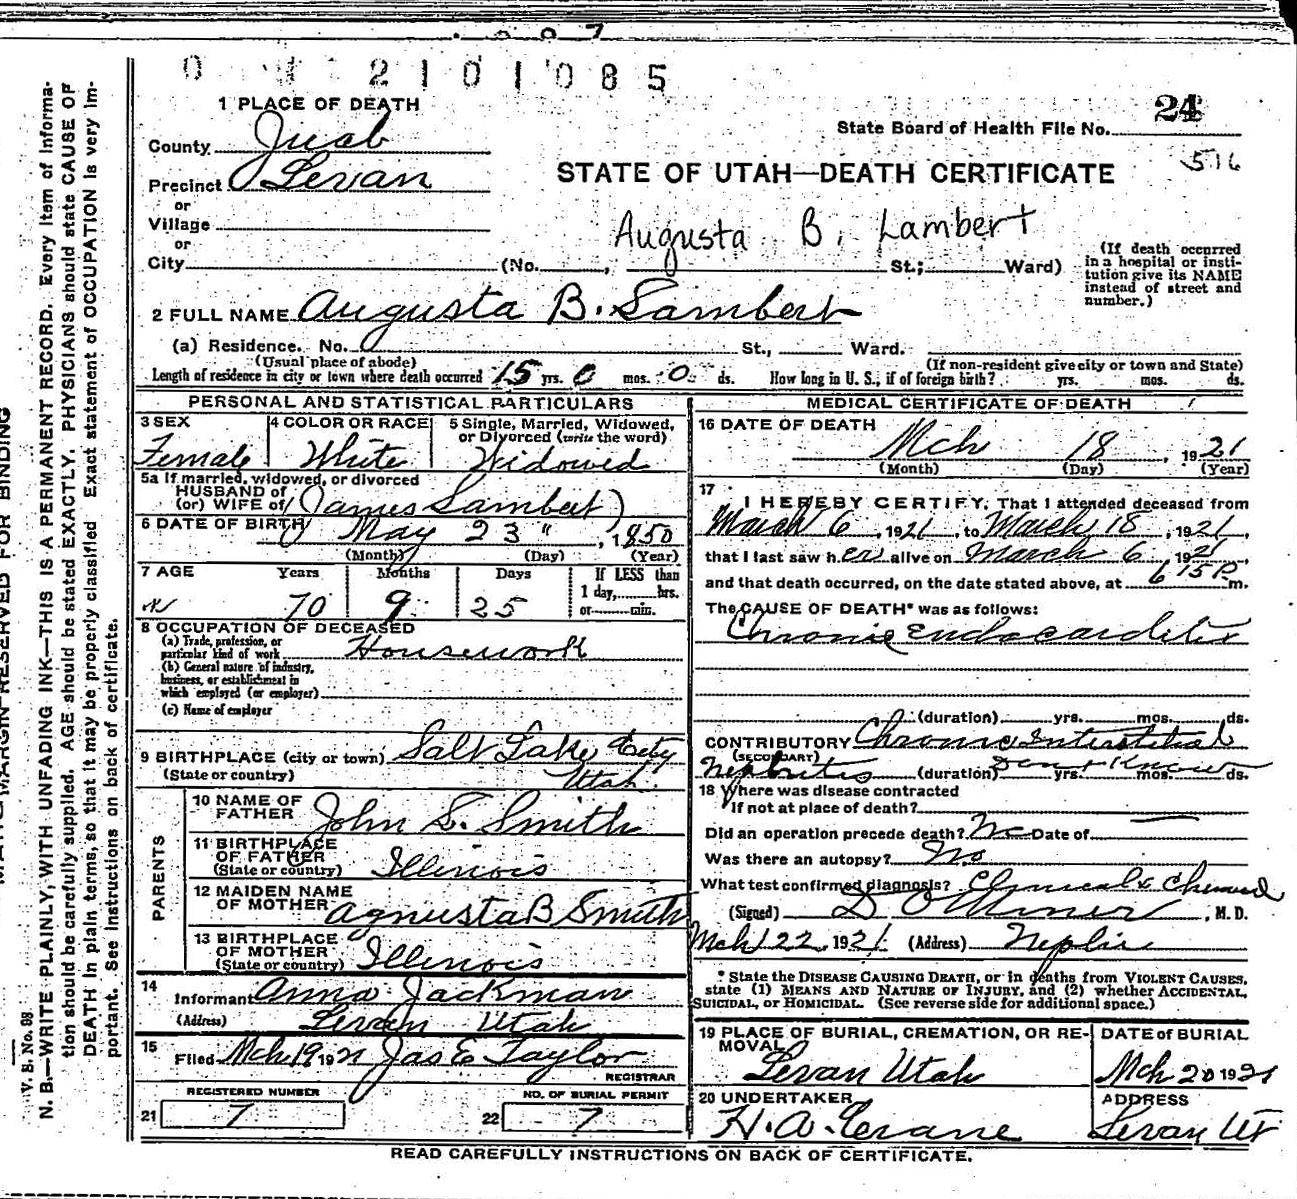 0 1 2101085
1 PLACE OF DEATH
24
State Board of Health File No.
County Juab
516
STATE OF UTAH—DEATH CERTIFICATE
Precinct Levan
or
Village
Augusta B. Lambert
or
City (No. , St.; Ward)
(If death occurred in a hospital or insti-
tution give its NAME
instead of street and
number.)
2 FULL NAME Augusta B. Lambert
(a) Residence. No. St., Ward.
(Usual place of abode)
(If non-resident give city or town and State)
Length of residence in city or town where death occurred 15 yrs. 0 mos. 0 ds. How long in U. S., if of foreign birth? yrs. mos. ds.
PERSONAL AND STATISTICAL PARTICULARS
3 SEX
Female
4 COLOR OR RACE
White
5 Single, Married, Widowed,
or Divorced (write the word)
Widowed
5a If married, widowed, or divorced
HUSBAND of
(or) WIFE of (James Lambert)
6 DATE OF BIRTH May 23 " , 1850
(Month) (Day) (Year)
7 AGE Years Months Days
70 9 25
If LESS than
1 day, hrs.
or min.
8 OCCUPATION OF DECEASED
(a) Trade, profession, or
particular kind of work Housework
(b) General nature of industry,
business, or establishment in
which employed (or employer)
(c) Name of employer
9 BIRTHPLACE (city or town) Salt Lake City
(State or country) Utah
PARENTS
10 NAME OF
FATHER John L. Smith
11 BIRTHPLACE
OF FATHER
(State or country) Illinois
12 MAIDEN NAME
OF MOTHER Agnusta B Smith
13 BIRTHPLACE
OF MOTHER
(State or country) Illinois
14
Informant Anna Jackman
(Address) Levan Utah
15
Filed Mch 19 1921 Jas E Taylor
REGISTRAR
REGISTERED NUMBER
21 7
NO. OF BURIAL PERMIT
22 7
MEDICAL CERTIFICATE OF DEATH
16 DATE OF DEATH
Mch 18 , 1921
(Month) (Day) (Year)
17
I HEREBY CERTIFY, That I attended deceased from
March 6 , 1921, to March 18, 1921,
that I last saw her alive on March 6 1921
and that death occurred, on the date stated above, at 6 15 P m.
The CAUSE OF DEATH* was as follows:
Chronic Endocarditis
(duration) yrs. mos. ds.
CONTRIBUTORY Chronic Interstitial
(SECONDARY)
Nephritis (duration) Don't Know yrs. mos. ds.
18 Where was disease contracted
If not at place of death?
Did an operation precede death? No Date of
Was there an autopsy? No
What test confirmed diagnosis? Clinical & Chemical
(Signed) , M. D.
Mch 22, 1921. (Address) Nephi
* State the DISEASE CAUSING DEATH, or in deaths from VIOLENT CAUSES,
state (1) MEANS AND NATURE OF INJURY, and (2) whether ACCIDENTAL,
SUICIDAL, or HOMICIDAL. (See reverse side for additional space.)
19 PLACE OF BURIAL, CREMATION, OR RE-
MOVAL
Levan Utah
DATE of BURIAL
Mch 20 1921
20 UNDERTAKER
H. A.
ADDRESS
Levan Ut
READ CAREFULLY INSTRUCTIONS ON BACK OF CERTIFICATE.
MARGIN RESERVED FOR BINDING
V. S. No. 98.
N. B.—WRITE PLAINLY, WITH UNFADING INK—THIS IS A PERMANENT RECORD. Every item of Informa-
tion should be carefully supplied. AGE should be stated EXACTLY. PHYSICIANS should state CAUSE OF
DEATH in plain terms, so that it may be properly classified. Exact statement of OCCUPATION is very im-
portant. See instructions on back of certificate.